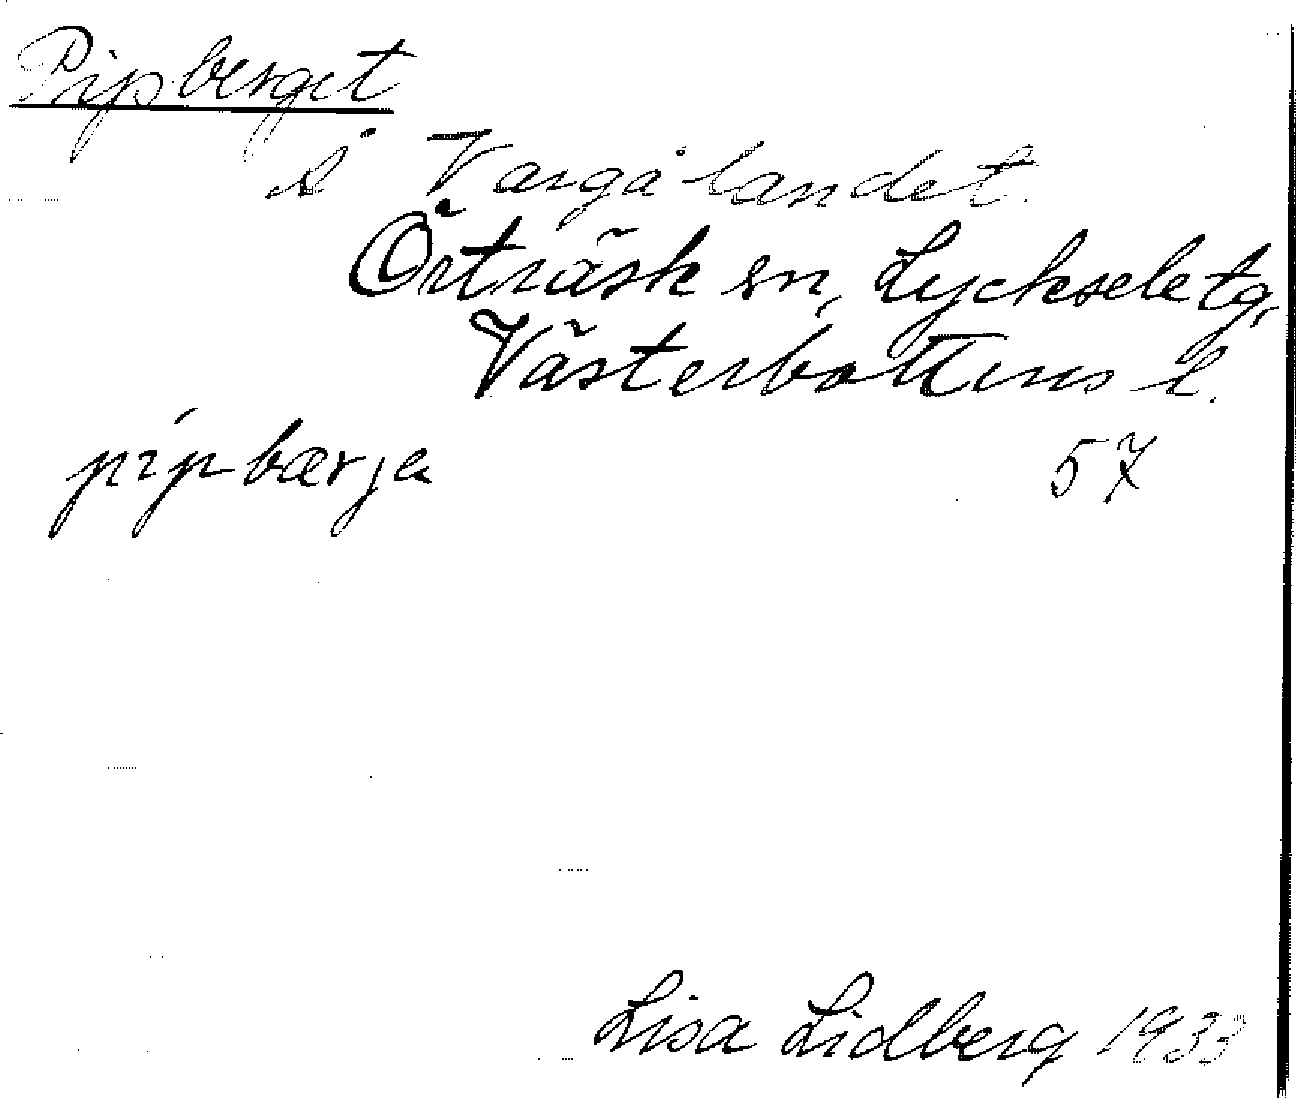 Pipberget
i Vargålandet.
Örträsk sn, Lycksele tg,
Västerbottens l.
pípbærja 57
Lisa Lidberg 1933